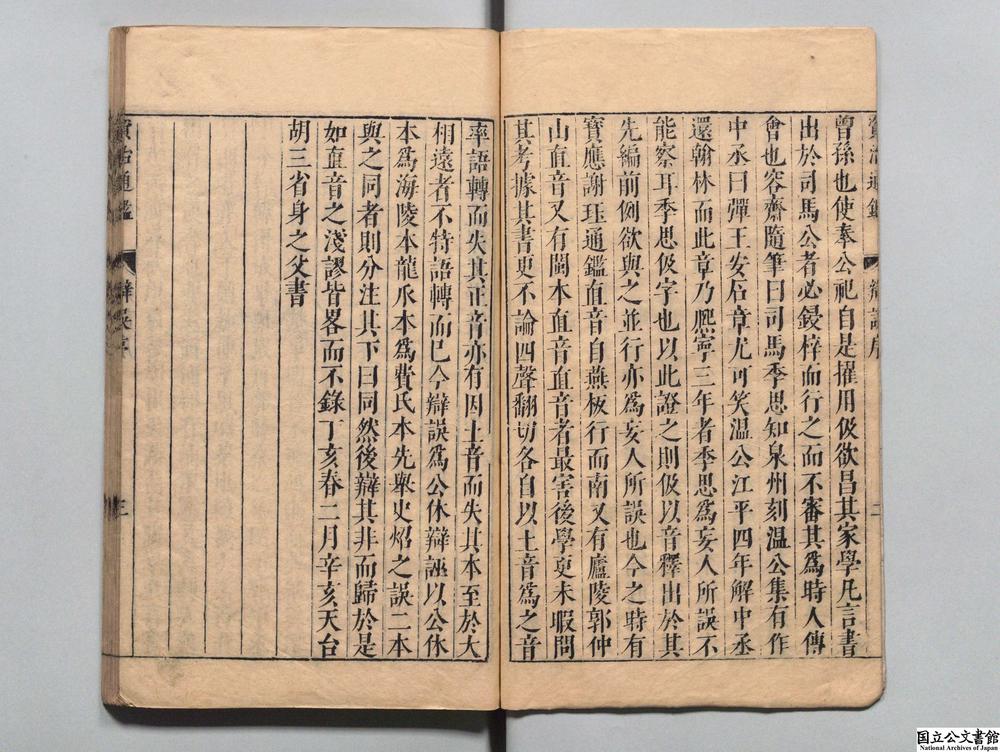 曾孫也使奉公祀自是擢用伋欲昌其家學凡言書
出於司馬公者必鋟梓而行之而不審其爲時人傅
會也容齋隨筆曰司馬季思知泉州刻溫公集有作
中丞日彈王安石章尤可笑溫公江平四年解中丞
還翰林而此章乃熈寧三年者季思爲妄人所誤不
能察耳季思伋字也以此證之則伋以音釋出於其
先編前例欲與之並行亦爲妄人所誤也今之時有
寶應謝珏通鑑直音自燕板行而南又有廬陵郭仲
山直音又有閩本直音直音者最害後學更未暇問
其考據其書更不論四聲翻切各自以土音爲之音
率語轉而失其正音亦有因土音而失其本至於大
相遠者不特語轉而已今辯誤爲公休辯誣以公休
本爲海陵本龍爪本爲費氏本先舉史炤之誤二本
與之同者則分注其下曰同然後辯其非而歸於是
如直音之淺謬皆畧而不錄丁亥春二月辛亥天台
胡三省身之父書
資治通鑑 辯誤序 二
資治通鑑 辯誤序 三
国立公文書館
National Archives of Japan